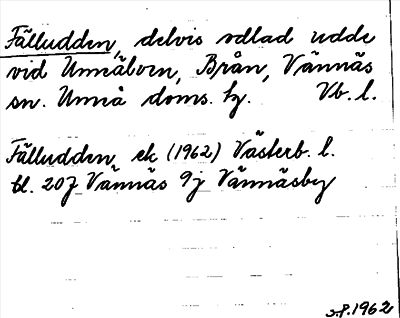 Fälludden, delvis odlad udde
vid Umeälven, Brån, Vännäs
sn. Umeå doms. hg. Vb. l.
Fälludden, ek (1962) Västerb. l.
bl. 20J Vännäs 9j Vännäsby
s.P.1962